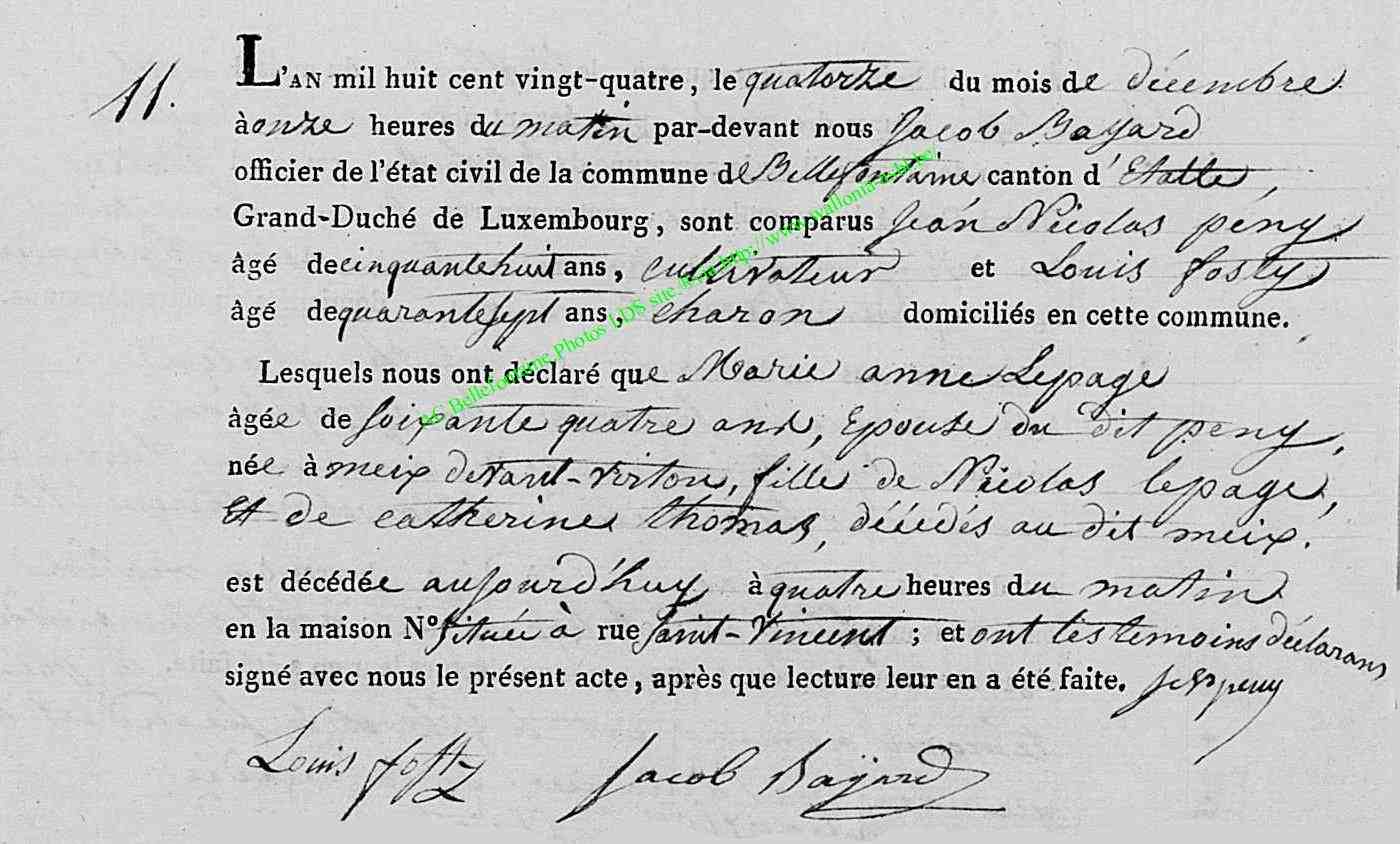 11.
L'AN mil huit cent vingt-quatre, le quatorze du mois de décembre
à onze heures du matin par-devant nous Jacob Bayard
officier de l'état civil de la commune de Bellefontaine canton d'Etalle,
Grand-Duché de Luxembourg, sont comparus Jean Nicolas peny
âgé de cinquante huit ans, cultivateur et Louis fosty
âgé de quarante sept ans, charon domiciliés en cette commune.
Lesquels nous ont déclaré que Marie anne Lepage
âgée de soixante quatre ans, Epouse du dit peny,
née à meix devant-virton, fille de Nicolas lepage,
Et de catherine thomas, décédés au dit meix.
est décédée aujourd'huy à quatre heures du matin
en la maison N° située à rue saint-Vincent ; et ont les temoins déclarans
signé avec nous le présent acte, après que lecture leur en a été faite. peny
Louis fosty Jacob Bayard
AC Bellefontaine Photos LDS site http://www.wallonia